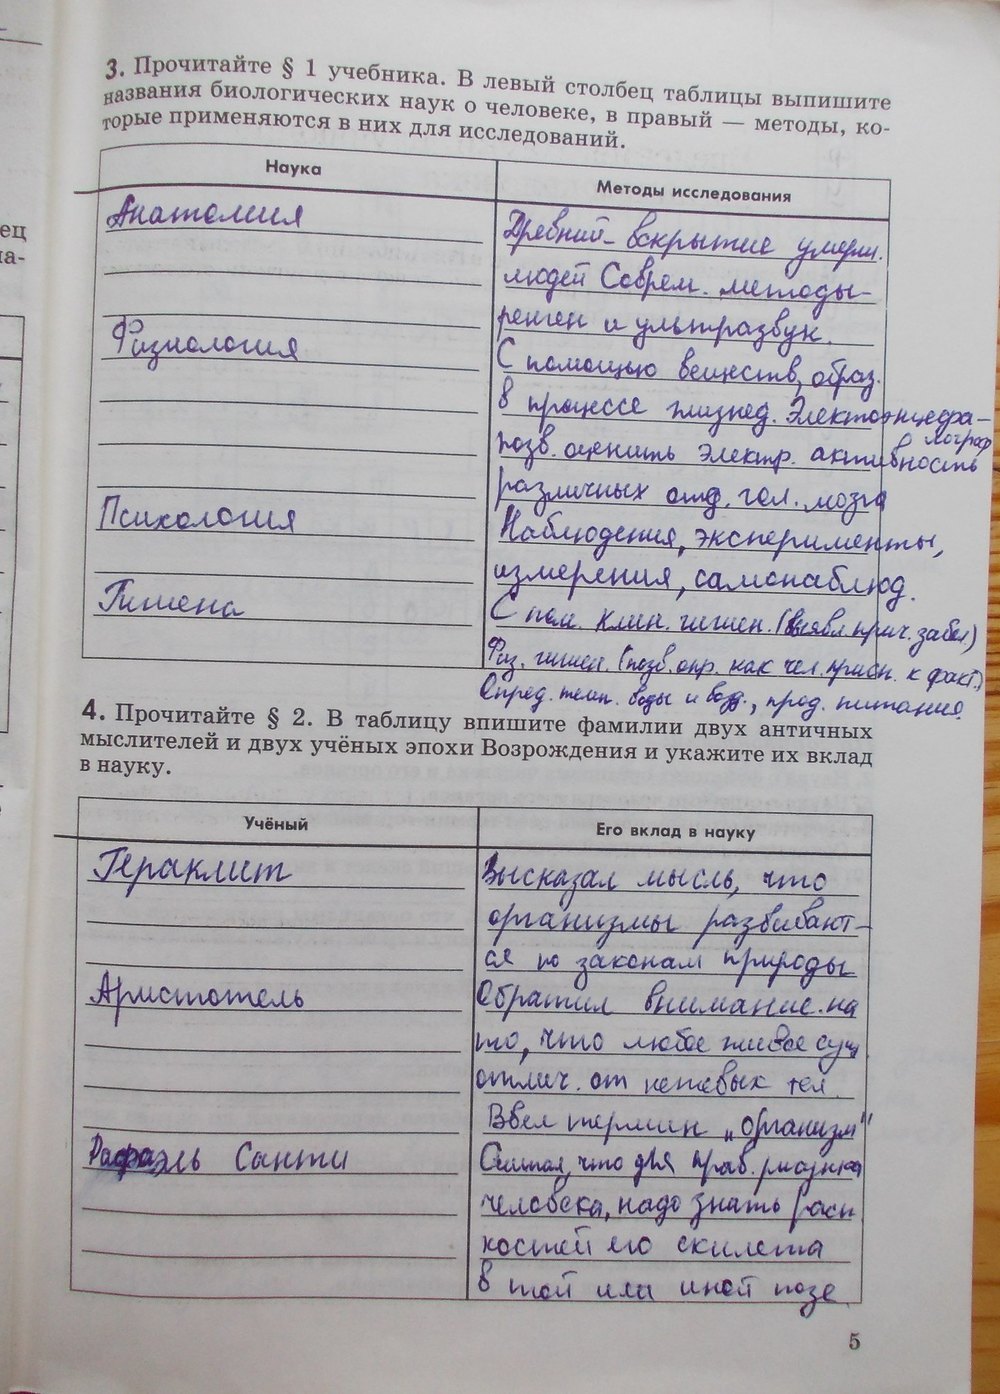 3. Прочитайте § 1 учебника. В левый столбец таблицы выпишите
названия биологических наук о человеке, в правый — методы, ко-
торые применяются в них для исследований.
Наука
Методы исследования
Анатомия
Древний - вскрытие умерш.
людей Соврем. методы -
ренген и ультразвук.
Физиология
С помощью веществ, образ.
в процессе жизнед. Электоэнцефа-
лограф
позв. оценить электр. активность
различных отд. гол. мозга
Психология
Наблюдения, эксперименты,
измерения, самонаблюд.
Гигиена
С пом. клин. гигиен. (выявл прич. забол)
Физ. гигиен. (позв. опр. как чел. присп. к факт.)
Опред. темп. воды и возд., прод. питания.
4. Прочитайте § 2. В таблицу впишите фамилии двух античных
мыслителей и двух учёных эпохи Возрождения и укажите их вклад
в науку.
Учёный
Его вклад в науку
Гераклит
Высказал мысль, что
организмы развивают-
ся по законам природы
Аристотель
Обратил внимание на
то, что любое живое сущ
отлич. от неживых тел.
Ввел термин „организм"
Рафаэль Санти
Считал, что для прав. рисунка
человека, надо знать расп
костей его скилета
в той или иной позе
5
ец
на-